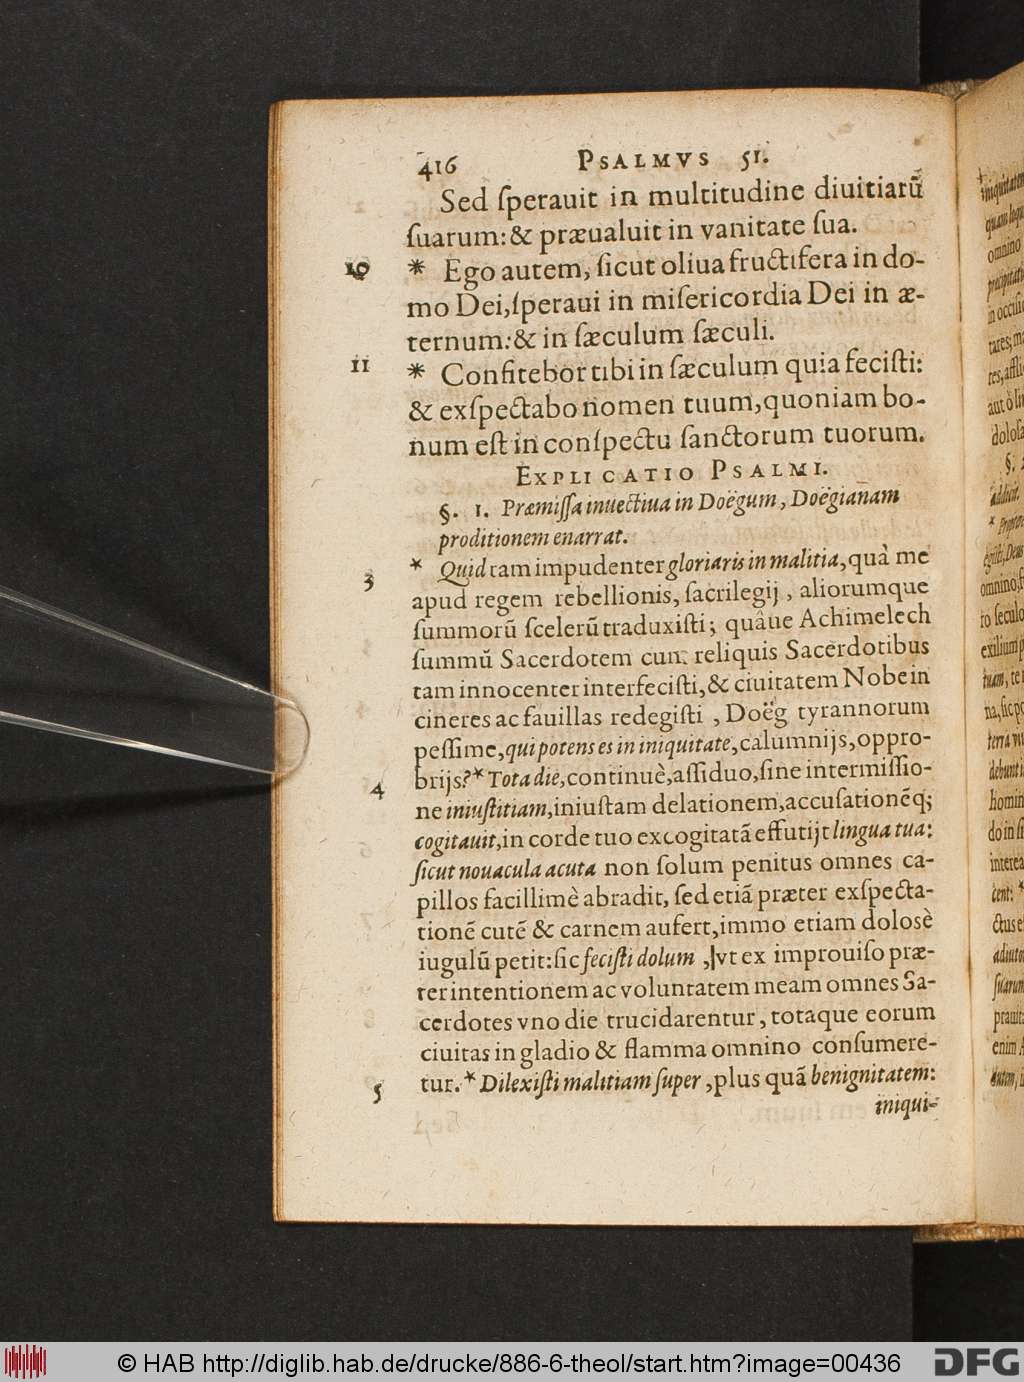 416 PSALMVS 51.
Sed ſperauit in multitudine diuitiarũ
ſuarum: & præualuit in vanitate ſua.
10 * Ego autem, ſicut oliua fructifera in do-
mo Dei, ſperaui in miſericordia Dei in æ-
ternum: & in ſæculum ſæculi.
11 * Confitebor tibi in ſæculum quia feciſti:
& exſpectabo nomen tuum, quoniam bo-
num eſt in conſpectu ſanctorum tuorum.
EXPLICATIO PSALMI.
§. 1. Præmiſſa inuectiua in Doëgum, Doëgianam
proditionem enarrat.
3 * Quid tam impudenter gloriaris in malitia, quà me
apud regem rebellionis, ſacrilegij, aliorumque
ſummorũ ſcelerũ traduxiſti; quâue Achimelech
ſummũ Sacerdotem cum reliquis Sacerdotibus
tam innocenter interfeciſti, & ciuitatem Nobe in
cineres ac fauillas redegiſti, Doëg tyrannorum
peſſime, qui potens es in iniquitate, calumnijs, oppro-
4 brijs? * Tota die, continuè, aſſiduo, ſine intermiſſio-
ne iniuſtitiam, iniuſtam delationem, accuſationẽq;
cogitauit, in corde tuo excogitatã effutijt lingua tua:
ſicut nouacula acuta non ſolum penitus omnes ca-
pillos facillimè abradit, ſed etiã præter exſpecta-
tionẽ cutẽ & carnem aufert, immo etiam dolosè
iugulũ petit: ſic feciſti dolum, vt ex improuiſo præ-
ter intentionem ac voluntatem meam omnes Sa-
cerdotes vno die trucidarentur, totaque eorum
ciuitas in gladio & flamma omnino conſumere-
5 tur. * Dilexiſti malitiam ſuper, plus quã benignitatem:
iniqui-
© HAB http://diglib.hab.de/drucke/886-6-theol/start.htm?image=00436
DFG